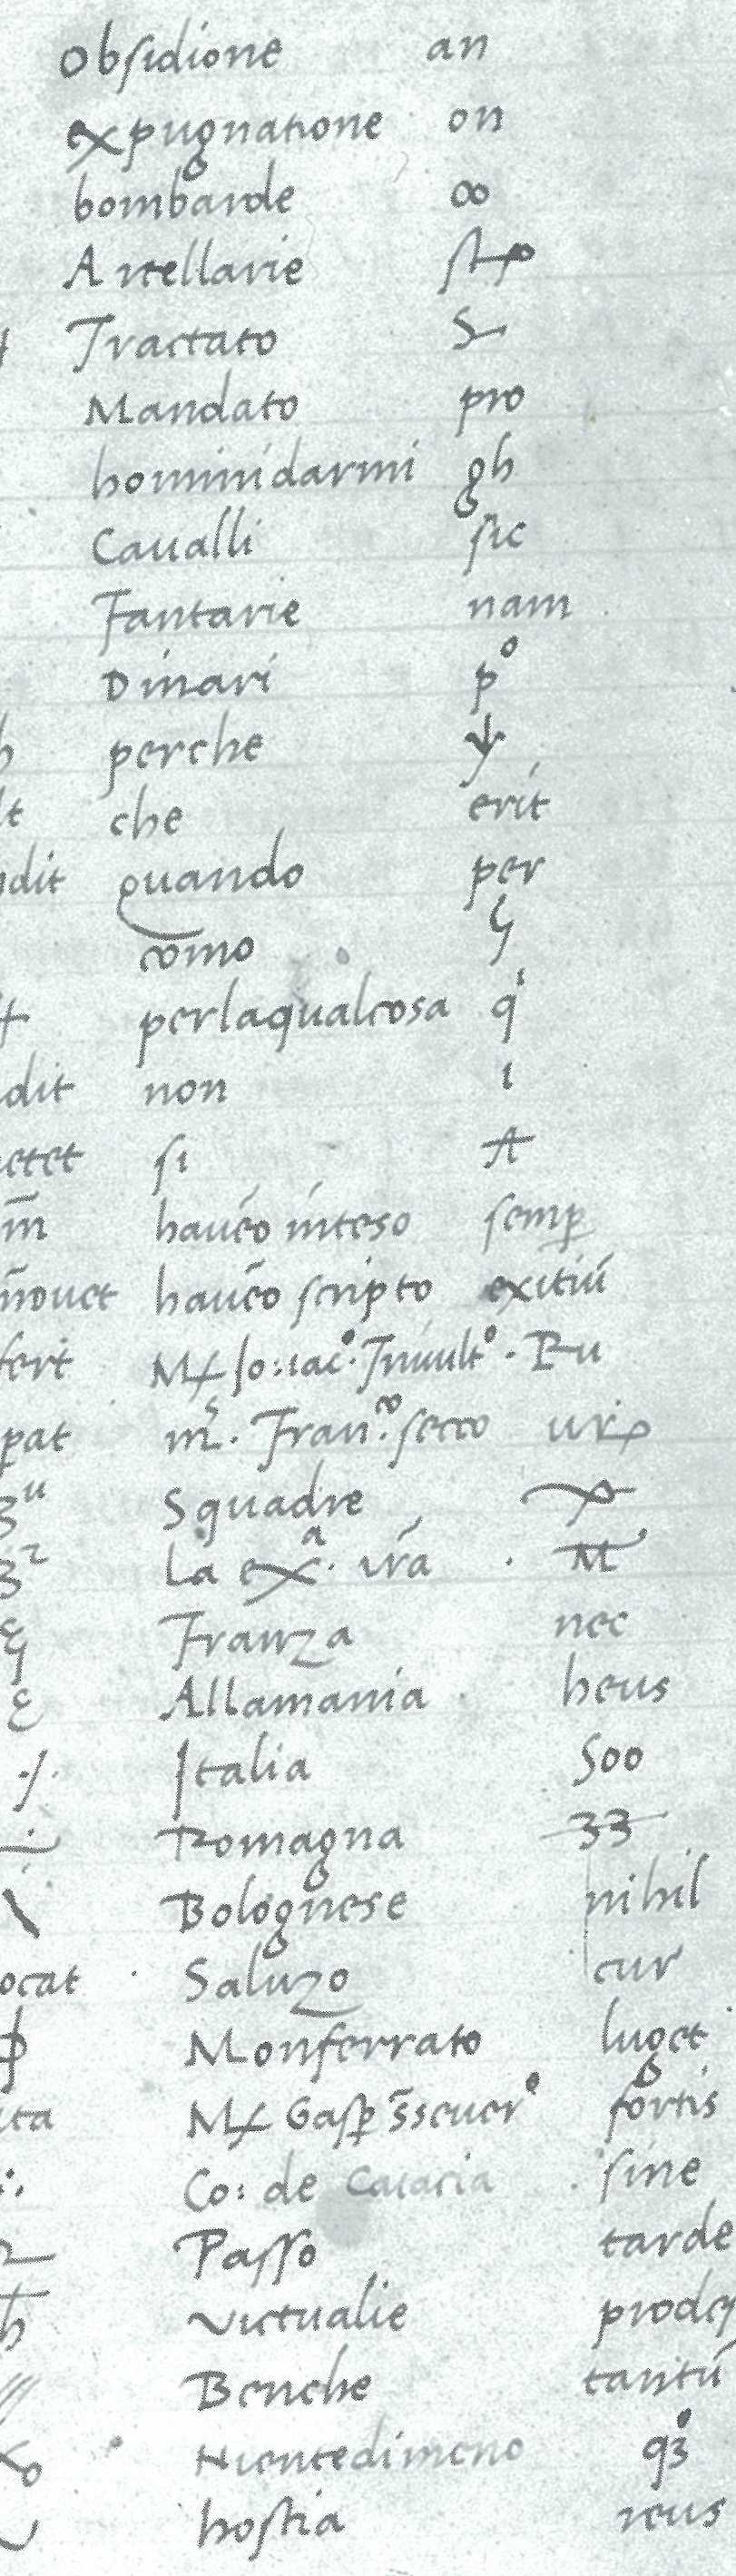 obsidione an
expugnatione on
bombarde ∞
Artellarie
Tractato
Mandato pro
hominidarmi gh
Caualli sic
Fantarie nam
Dinari pº
perche
lt che erit
ndit quando per
como
perlaqualcosa qi
dit non ı
etet si
m̄ hauēo inteso semp̲
mouet hauēo scripto exitiū
fert Mx Jo: iacº. Triuultº. Ru
pat Franco. secco
3u Squadre
32 La exa. vr̄a
Franza nec
Allamania heus
Italia 500
Romagna 33
Bolognese nihil
ocat Saluzo cur
Monferrato luget
ta Mx Gasp̲ s̄seuerº fortis
Co: de sine
Passo tarde
Victualie
Benche tantū
Nientedimeno
hostia reus